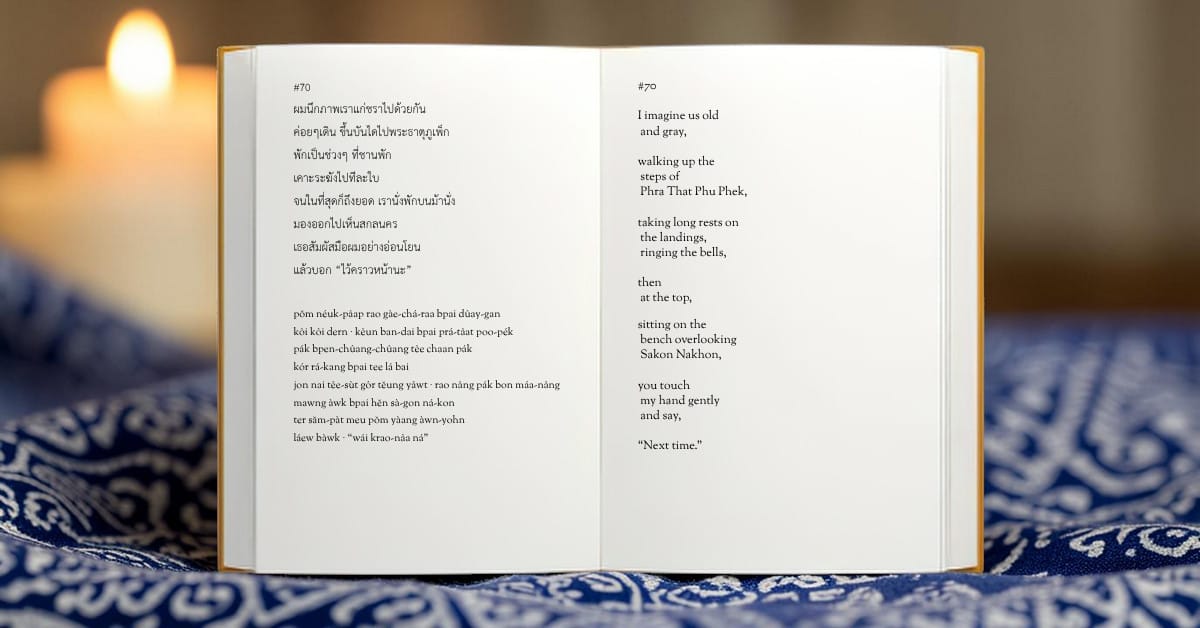 #70
ผมนึกภาพเราแก่ชราไปด้วยกัน
ค่อยๆเดิน ขึ้นบันไดไปพระธาตุภูเพ็ก
พักเป็นช่วงๆ ที่ชานพัก
เคาะระฆังไปทีละใบ
จนในที่สุดก็ถึงยอด เรานั่งพักบนม้านั่ง
มองออกไปเห็นสกลนคร
เธอสัมผัสมือผมอย่างอ่อนโยน
แล้วบอก “ไว้คราวหน้านะ”
pŏm néuk-pâap rao gàe-chá-raa bpai dûay-gan
kôi kôi dern · kêun ban-dai bpai prá-tâat poo-pék
pák bpen-chûang-chûang têe chaan pák
kór rá-kang bpai tee lá bai
jon nai têe-sùt gôr tĕung yâwt · rao nâng pák bon máa-nâng
mawng àwk bpai hĕn sà-gon ná-kon
ter săm-pàt meu pŏm yàang àwn-yohn
láew bàwk · “wái krao-nâa ná”
#70
I imagine us old
and gray,
walking up the
steps of
Phra That Phu Phek,
taking long rests on
the landings,
ringing the bells,
then
at the top,
sitting on the
bench overlooking
Sakon Nakhon,
you touch
my hand gently
and say,
“Next time.”